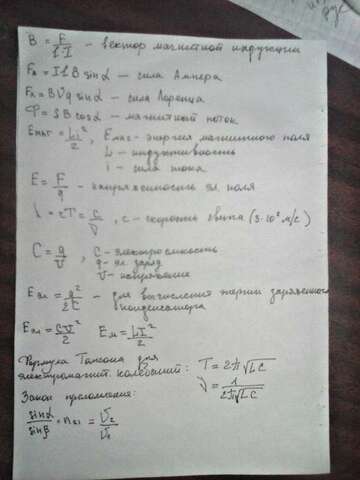 B = F/(l·I) – вектор магнитной индукции
Fₐ = IlB sinα – сила Ампера
Fл = BVq sinα – сила Лоренца
Ф = SB cosα – магнитный поток
Eмаг = Li²/2, Eмаг – энергия магнитного поля
L – индуктивность
i – сила тока
E = F/q – напряженность эл. поля
λ = cT = c/ν, c – скорость света (3·10⁸ м/с)
C = q/U, C – электроемкость
q – эл. заряд
U – напряжение
Eэл = q²/2C – для вычисления энергии заряженного
конденсатора
Eэл = CU²/2 Eм = LI²/2
Формула Томсона для
электромагнит. колебаний: T = 2π√LC
ν = 1/(2π√LC)
Закон преломления:
sinα/sinβ = n₂₁ = V₂/V₁